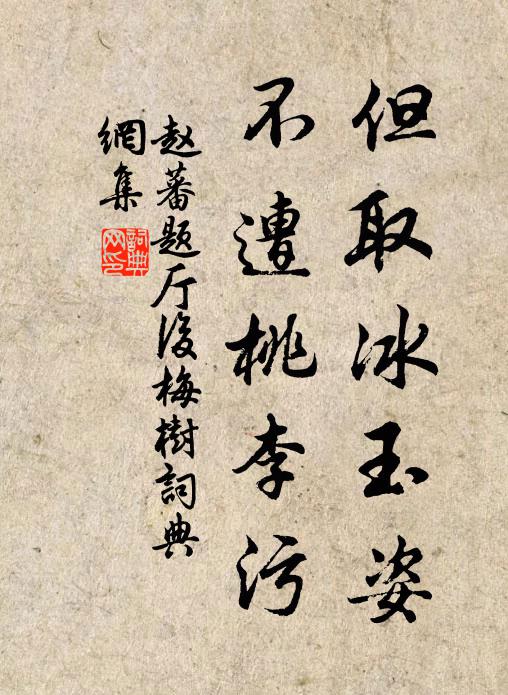 但取冰玉姿
不遭桃李污
赵蕃题厅后梅樹詞典
網集
詞典网印